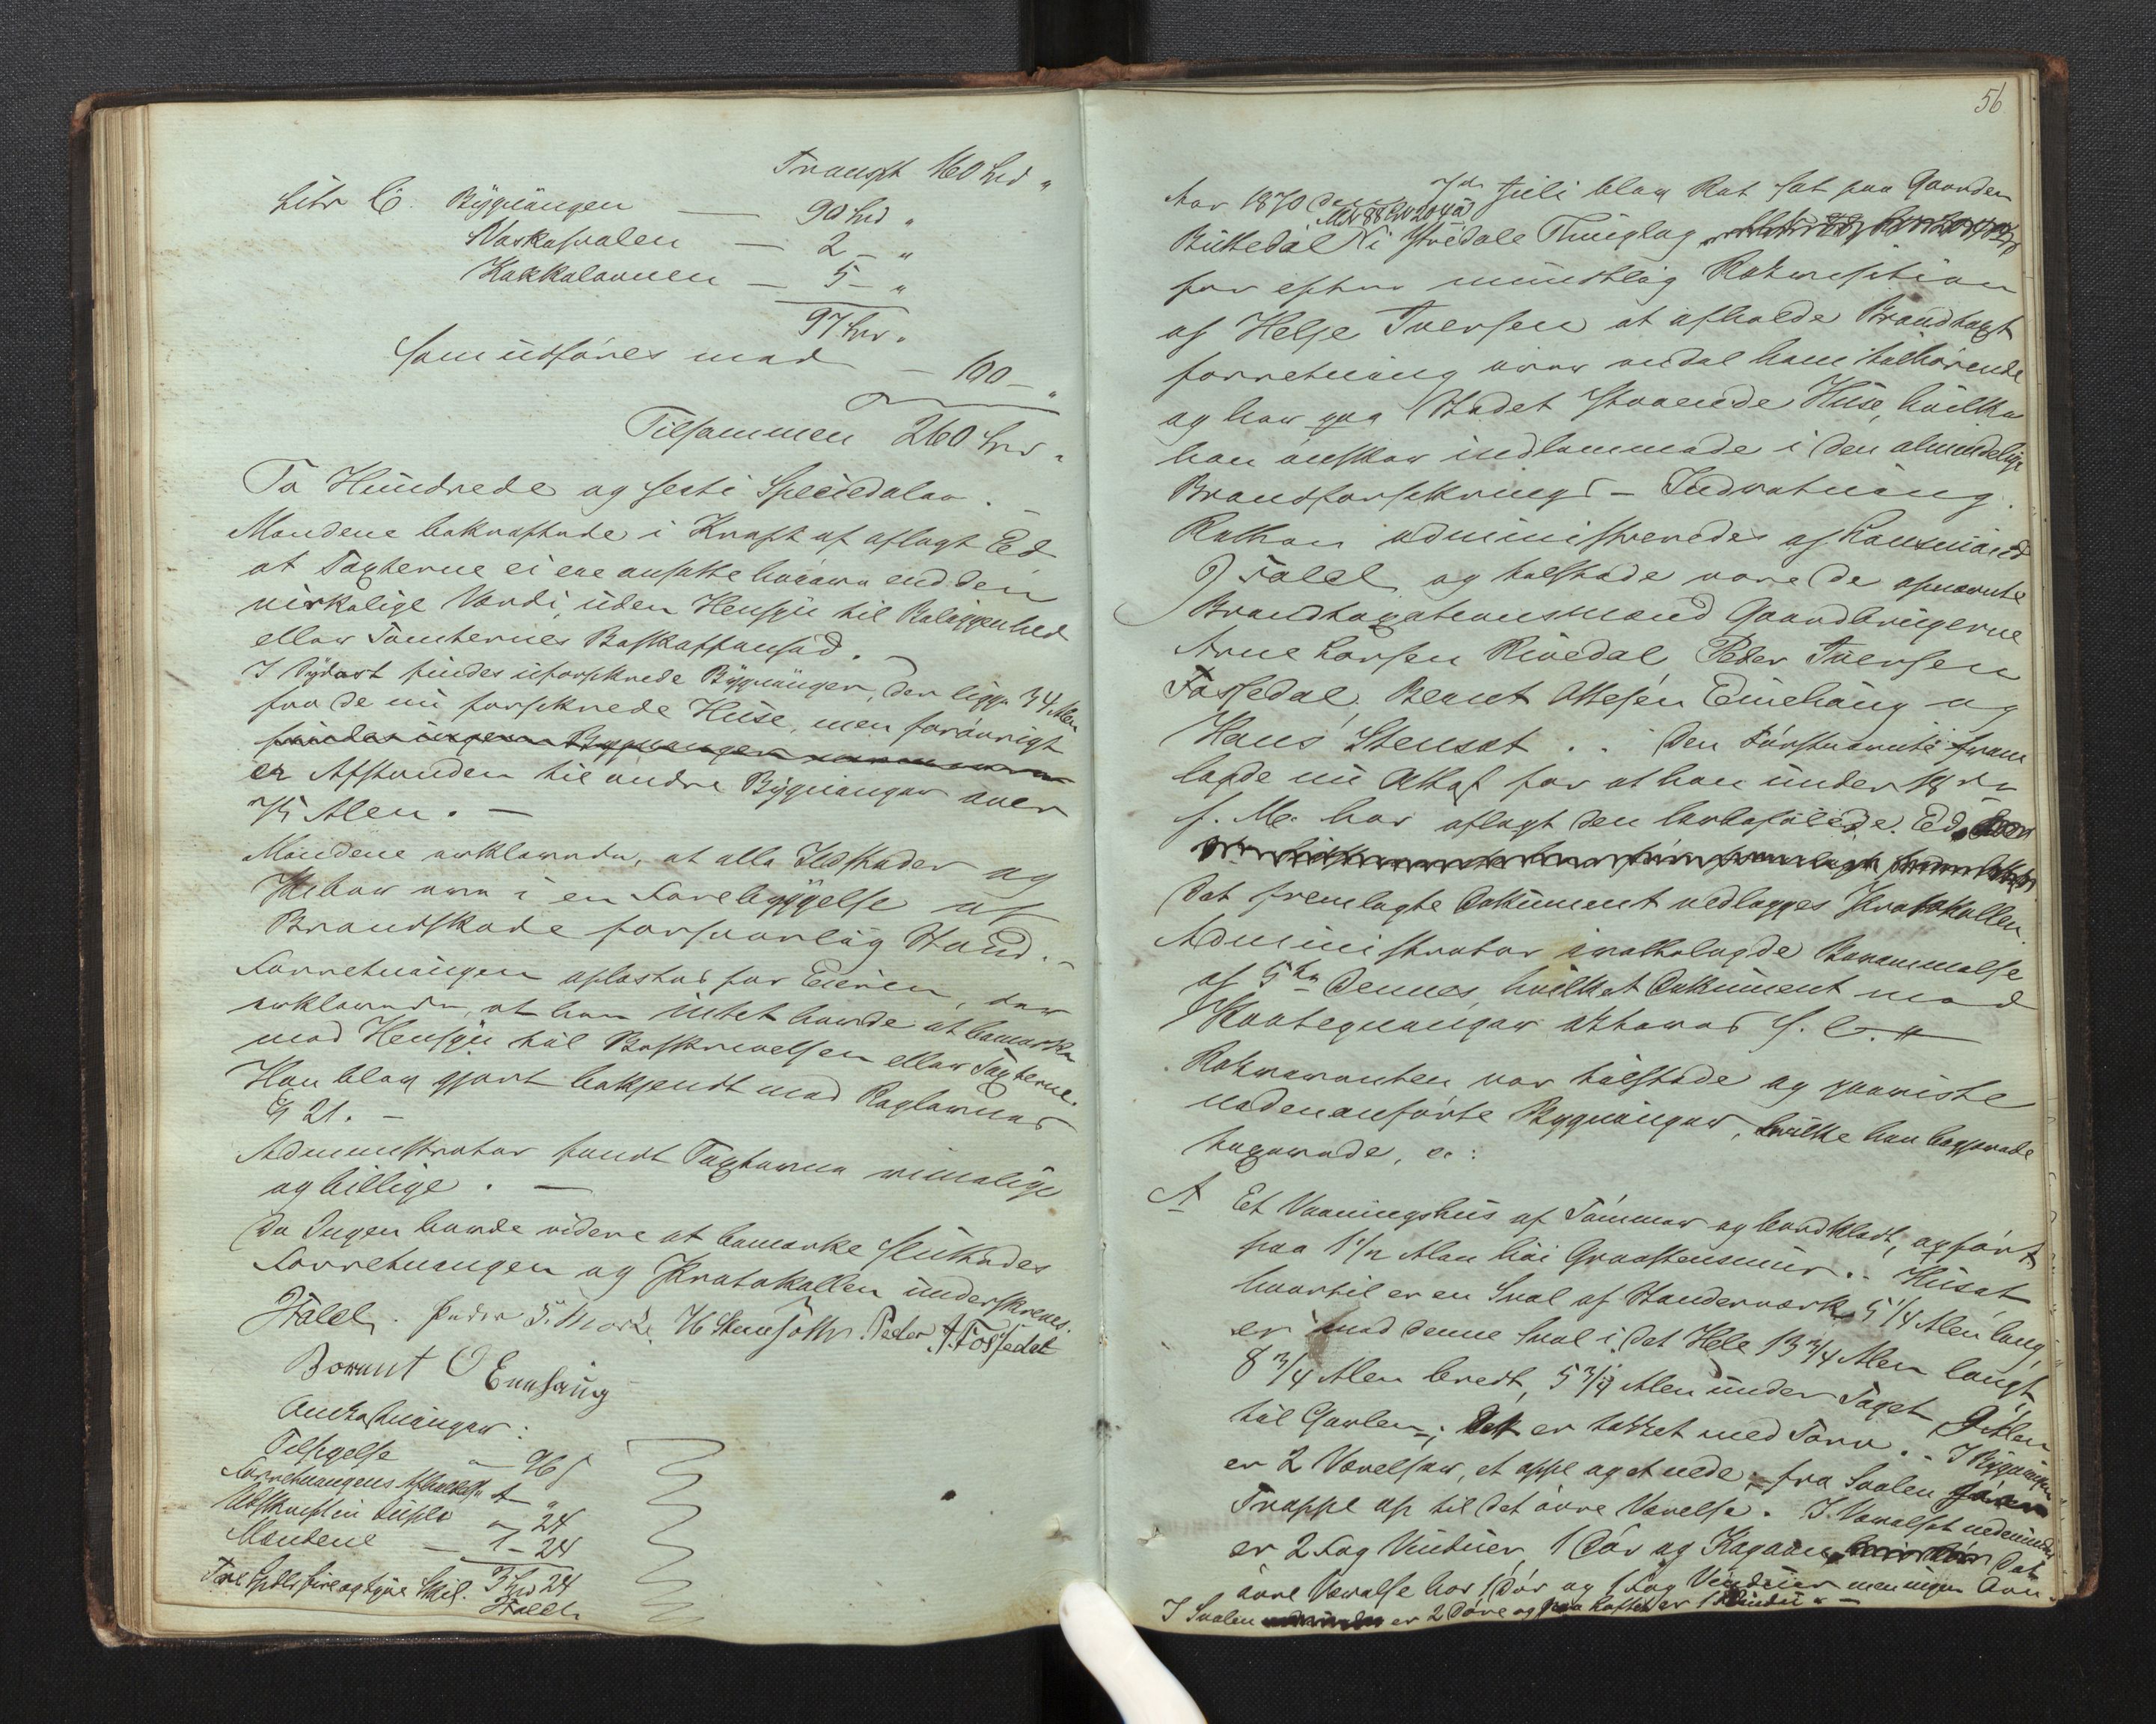 Transpt 160 Spd "
Litr C. Bygningen — 90 Spd "
Vaskesvalen — 2 - "
Kakkelovnen — 5 - "
97 Spd "
som udføres med — 100 - "
Tilsammen 260 Spd "
To Hundrede og sexti Speciedaler.
Mændene bekræftede i Kraft af aflagt Ed
at Taxterne ei ere ansatte høiere end den
virkelige Værdi uden Hensyn til Beliggenhed
eller Tomternes Beskaffenhed. —
I Sydost findes uforsikrede Bygninger, der ligge 34 Alen
fra de nu forsikrede Huse, men forøvrigt
er Afstanden til andre Bygninger over
75 Alen. —
Mændene erklærede, at alle Ildsteder og
Piber ere i en Forebyggelse af
Brandskade forsvarlig Stand. —
Forretningen oplæstes for Eieren, der
erklærede, at han intet havde at bemærke
med Hensyn til Beskrivelsen eller Taxterne.
Han blev gjort bekjendt med Reglernes
§ 21. —
Administrator fandt Taxterne rimelige
og billige. —
Da Ingen havde videre at bemærke sluttedes
Forretningen og Protokollen underskreves.
JFalch. Peder I. H Stensæth Peder I. Fossedal
Berent O Eenhaug
Omkostninger:
Tilsigelse — 96 s
Forretningens Afholdelse 1 - "
Udskrift in duplo " - 24
Mændene — 1 - 24
Tre Spdlr fire og tyve Skil. 3 Spd 24
JFalch
56
Aar 1870 den 7de Juli blev Ret sat paa Gaarden
MNr 88 LNr 204 a
Buttedal i Ytredale Thinglag
for efter mundtlig Rekvisition
af Helje Iversen at afholde Brandtaxt
forretning over endel ham tilhørende
og her paa Stedet staaende Huse, hvilke
han ønsker indlemmede i den almindelige
Brandforsikrings-Indretning.
Retten administreredes af Lensmand
J Falch og tilstede vare de opnævnte
Brandtaxationsmænd Gaardbrugerne
Arne Larsen Rivedal, Peder Iversen
Fossedal, Berent Olsen Eenhaug og
Hans Stensæt. . Den Førstnævnte frem
lagde nu Attest for at han under
f. M. har aflagt den lovbefalede Ed.
Det fremlagte Dokument vedlægges Protokollen.
Administrator irettelagde Berammelse
af 5te dennes, hvilket Dokument med
Paategninger
Rekvirenten var tilstede og paaviste
nedenanførte Bygninger, hvilke han begjærede
taxerede, s:
A Et Vaaningshus af Tømmer og bordklædt, opført
paa 1 1/2 Alen høi Graastensmur. Huset
hvortil er en Sval af Stenderværk 5 1/4 Alen lang,
er med denne Sval i det Hele 13 3/4 Alen langt,
8 3/4 Alen bredt, 5 3/4 Alen under Taget 9 Alen
til Gavlen; Det er tækket med Torv. - I Bygningen
er 2 Værelser, et oppe og et nede; fra Svalen
Trappe op til det øvre Værelse. I Værelset nedenunder
er 2 Fag Vinduer, 1 Dør og Kogeovn, Det
øvre Værelse har 1 Dør og 1 Fag Vinduer men ingen Ovn.
I Svalen er 2 Døre og paa Loftet er 1 Vindu —